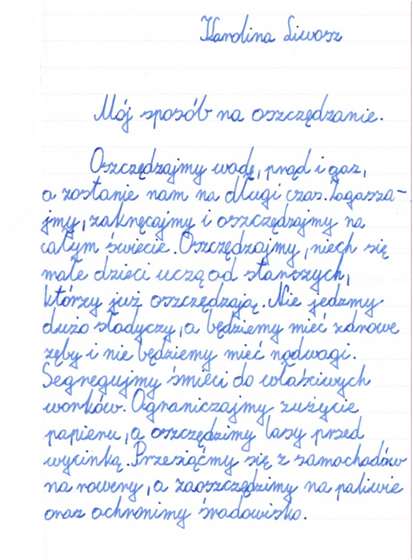 Karolina Liwosz
Mój sposób na oszczędzanie.
Oszczędzajmy wodę, prąd i gaz,
a zostanie nam na długi czas. Zagasza-
jmy, zakręcajmy i oszczędzajmy na
całym świecie. Oszczędzajmy, niech się
małe dzieci uczą od starszych,
którzy już oszczędzają. Nie jedzmy
dużo słodyczy, a będziemy mieć zdrowe
zęby i nie będziemy mieć nadwagi.
Segregujmy śmieci do właściwych
worków. Ograniczajmy zużycie
papieru, a oszczędzimy lasy przed
wycinką. Przesiądźmy się z samochodów
na rowery, a zaoszczędzimy na paliwie
oraz ochronimy środowisko.